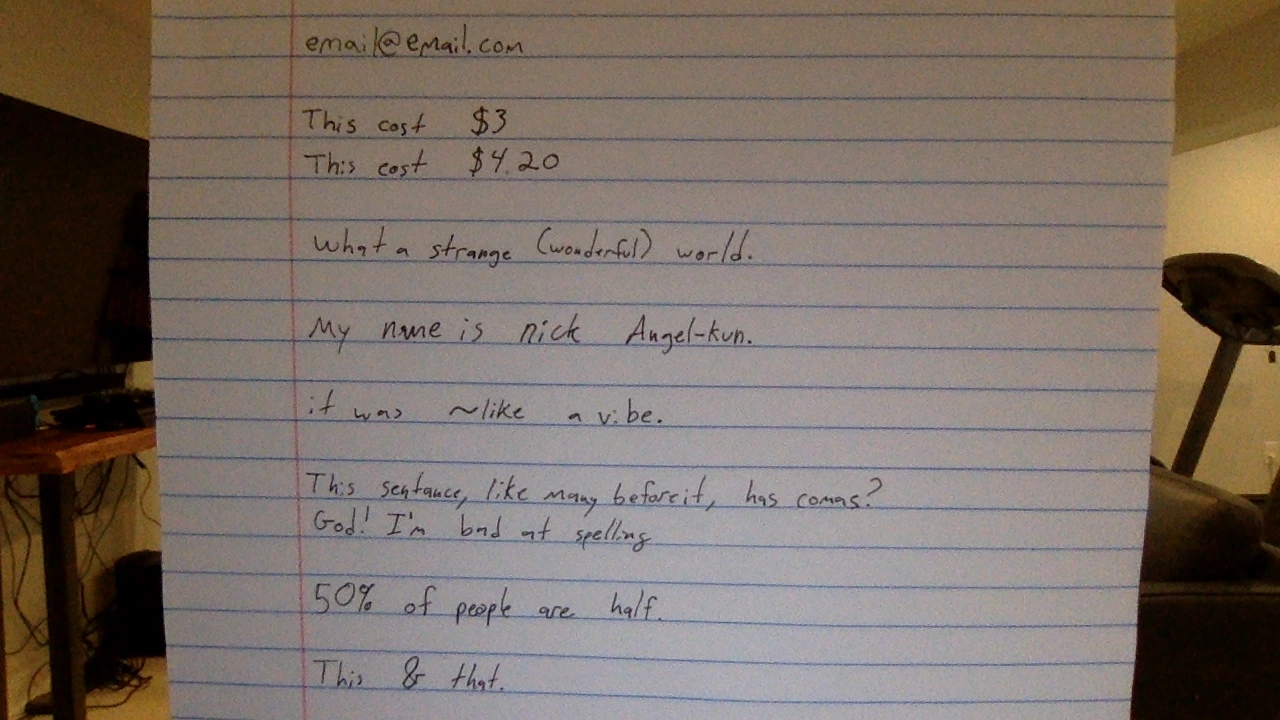 email@email.com
This cost $3
This cost $4.20
What a strange (wonderful) world.
My name is nick Angel-kun.
it was ~like a vibe.
This sentance, like many before it, has comas?
God! I'm bad at spelling
50% of people are half.
This & that.